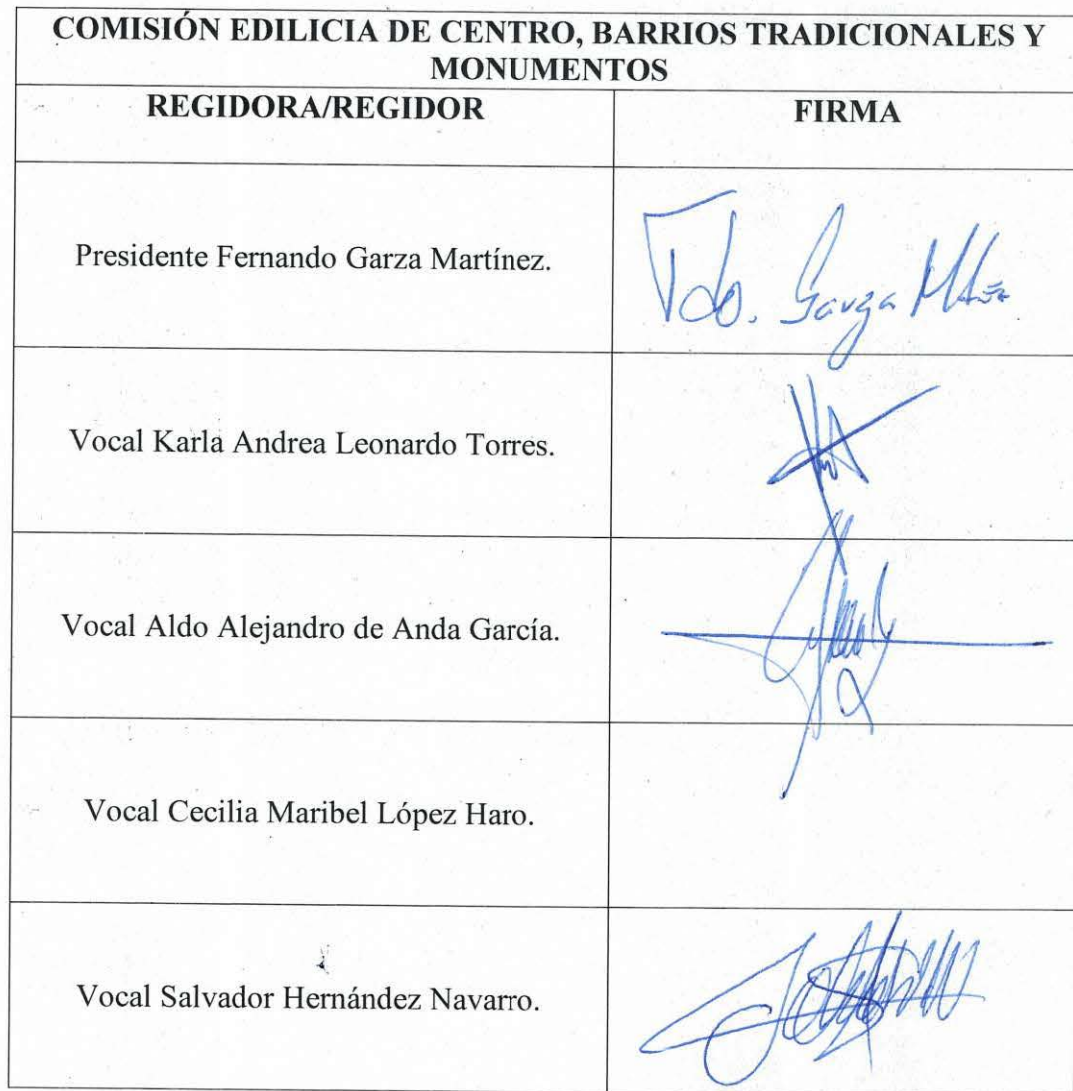 COMISIÓN EDILICIA DE CENTRO, BARRIOS TRADICIONALES Y
MONUMENTOS
REGIDORA/REGIDOR
FIRMA
Presidente Fernando Garza Martínez.
Fdo. Garza
Vocal Karla Andrea Leonardo Torres.
Vocal Aldo Alejandro de Anda García.
Vocal Cecilia Maribel López Haro.
Vocal Salvador Hernández Navarro.